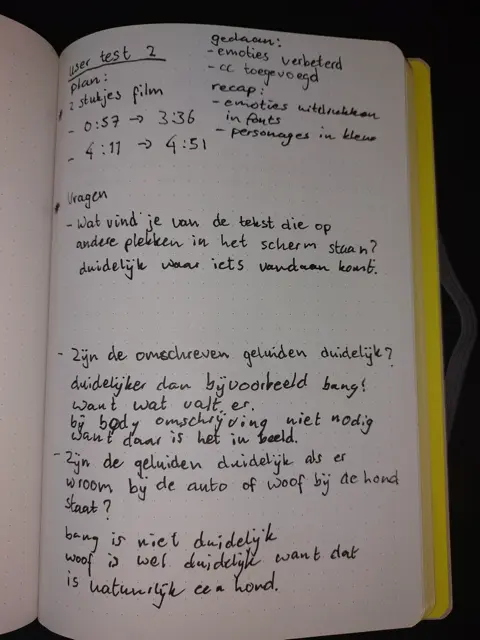 user test 2
plan:
2 stukjes film
- 0:57 → 3:36
- 4:11 → 4:51
gedaan:
- emoties verbeterd
- cc toegevoegd
recap:
- emoties uitdrukken
in fonts
- personages in kleur
Vragen
- Wat vind je van de tekst die op
andere plekken in het scherm staan?
duidelijk waar iets vandaan komt.
- Zijn de omschreven geluiden duidelijk?
duidelijker dan bijvoorbeeld bang!
want wat valt er.
bij body omschrijving niet nodig
want daar is het in beeld.
- Zijn de geluiden duidelijk als er
vroom bij de auto of woof bij de hond
staat?
bang is niet duidelijk
woof is wel duidelijk want dat
is natuurlijk een hond.